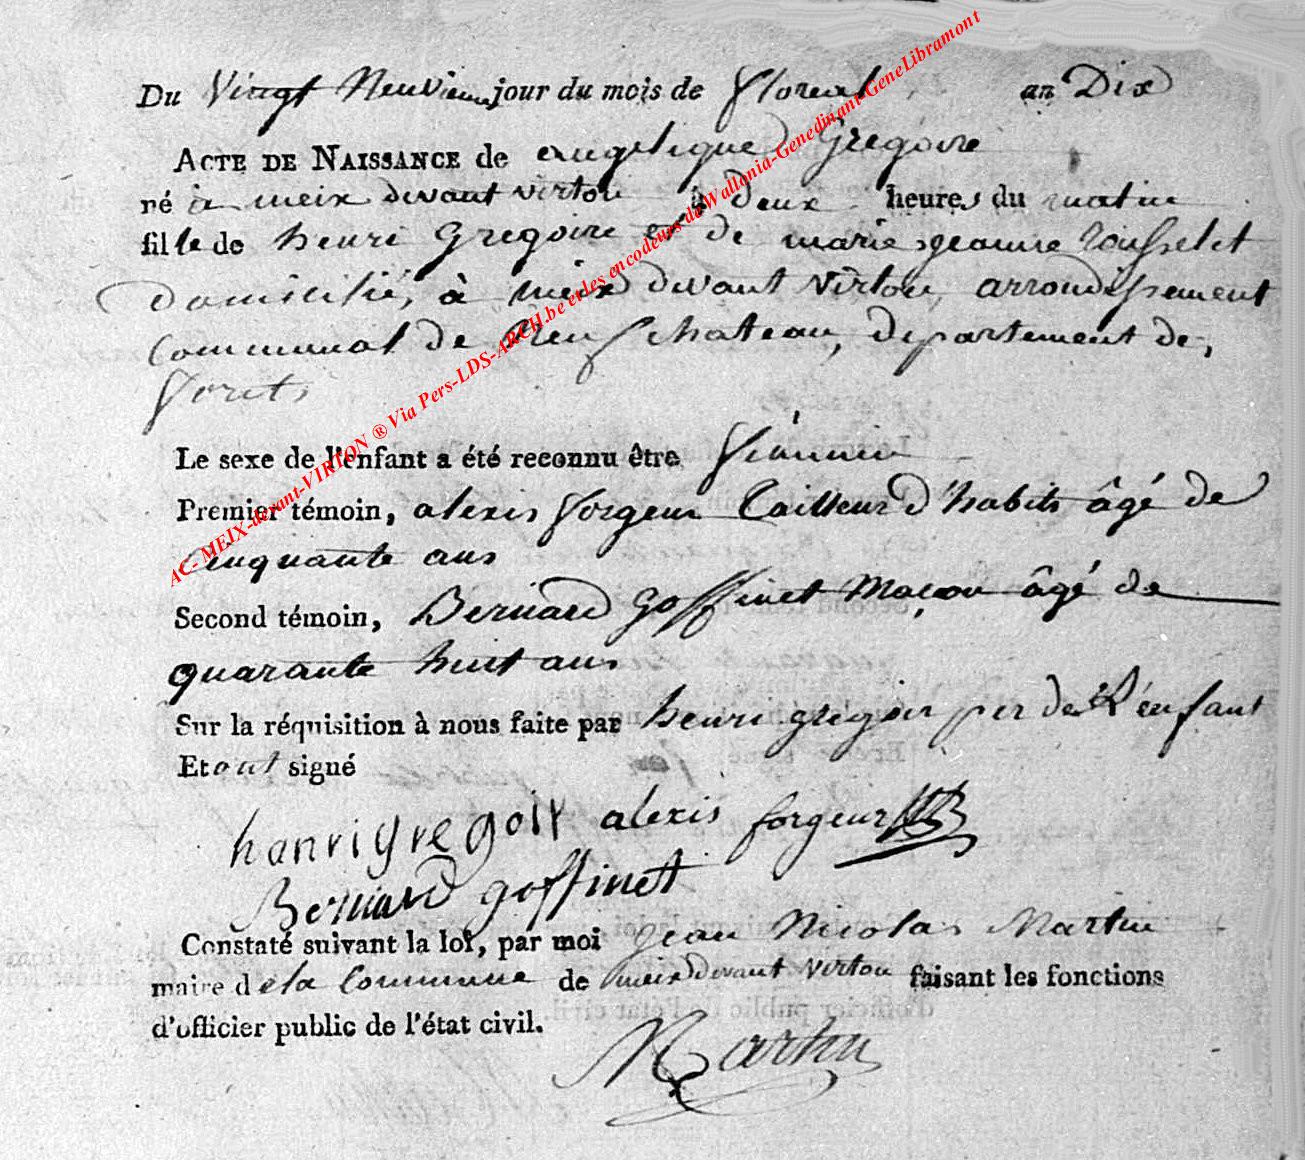 Du Vingt Neuvieme jour du mois de floreal an Dix
ACTE DE NAISSANCE de angelique Gregoire
né à meix devant virton à deux heures du matin
fille de henri Gregoire et de marie jeanne rousselet
domicilié, à meix devant virton, arrondissement
Communal de Neufchateau, departement de,
forets
Le sexe de l'enfant a été reconnu être féminin
Premier témoin, alexis forgeur tailleur d'habits âgé de
cinquante ans
Second témoin, Bernard goffinet Maçon âgé de
quarante huit ans
Sur la réquisition à nous faite par henri gregoir per de l'enfant
Et ont signé
hanri gregoir alexis forgeur
Bernard goffinet
Constaté suivant la loi, par moi jean Nicolas Martin
maire de la Commune de meix devant virton faisant les fonctions
d'officier public de l'état civil.
Martin
AC- MEIX-devant-VIRTON ® Via Pers-LDS-ARCH.be et les encodeurs de Wallonia-Genedinant-GeneLibramont